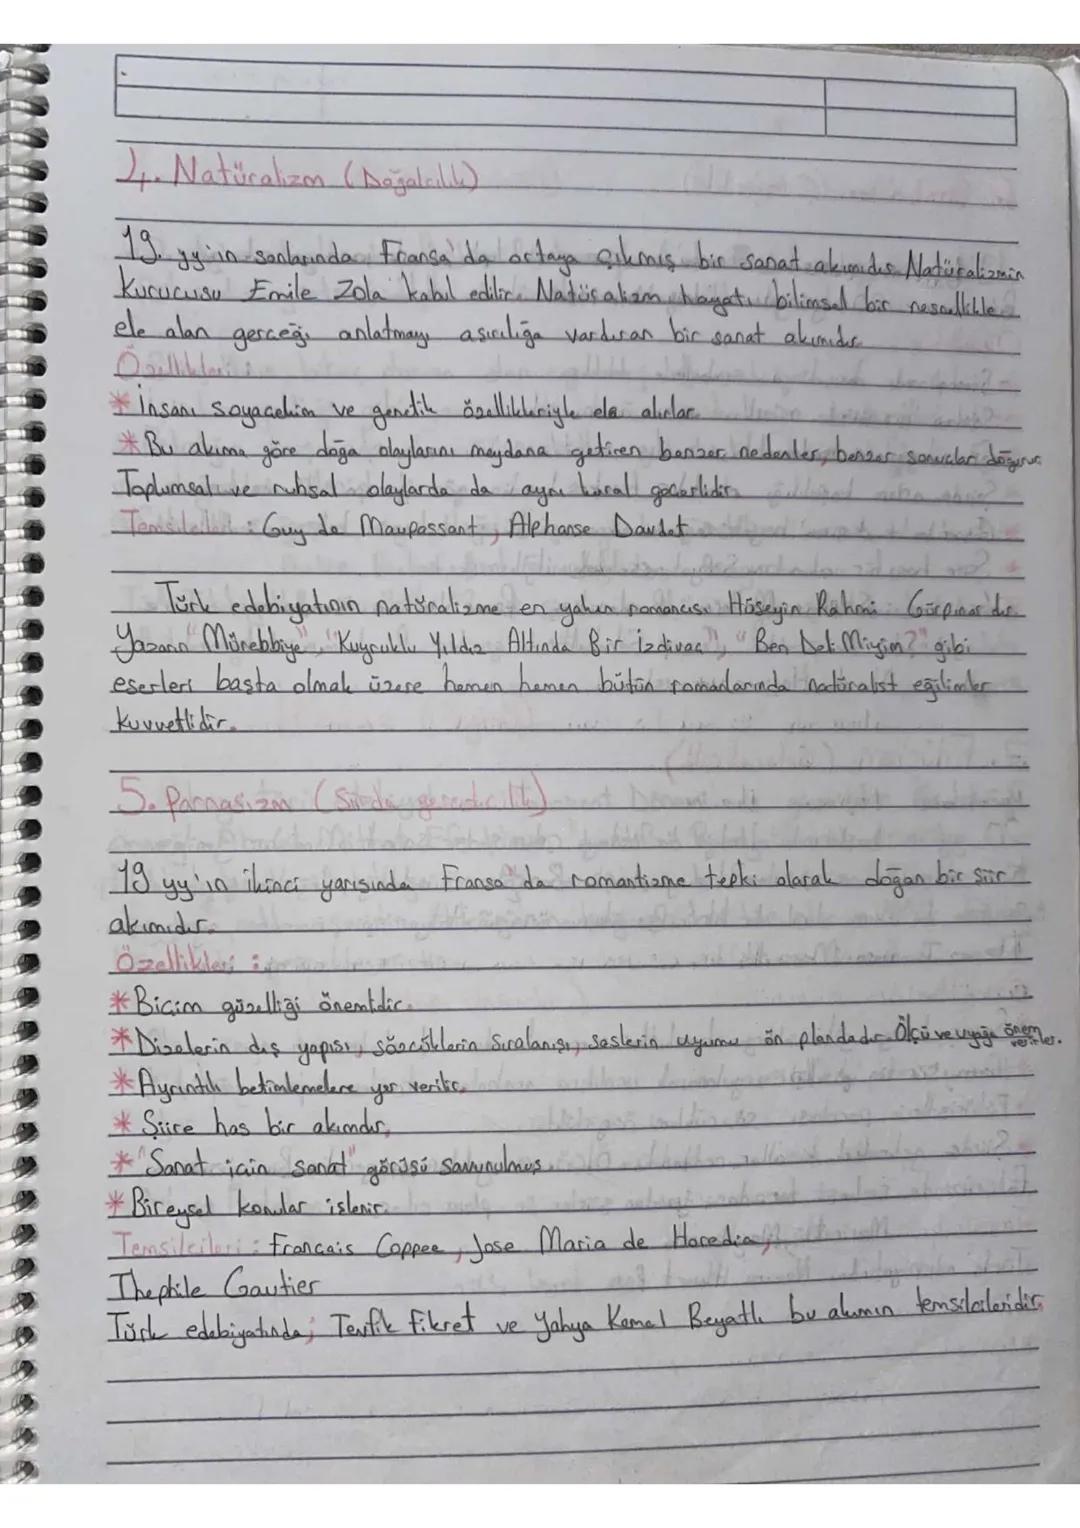 4. Natüralizm (Doğalcılık)
19. yy'ın sonlarında Fransa'da ortaya çıkmış bir sanat akımıdır. Natüralizmin
Kurucusu Emile Zola kabul edilir. Natüralizm hayatı bilimsel bir nesnellikle
ele alan gerçeği anlatmayı aşırılığa vardıran bir sanat akımıdır
Özellikleri :
* İnsanı soyaçekim ve genetik özellikleriyle ele alırlar.
* Bu akıma göre doğa olaylarını meydana getiren benzer nedenler, benzer sonuçlar doğurur.
Toplumsal ve ruhsal olaylarda da aynı kural geçerlidir.
Temsilcileri : Guy de Maupassant, Alphonse Daudet
Türk edebiyatının natüralizme en yakın romancısı Hüseyin Rahmi Gürpınar'dır.
Yazarın "Mürebbiye", "Kuyruklu Yıldız Altında Bir İzdivaç", "Ben Deli Miyim?" gibi
eserleri başta olmak üzere hemen hemen bütün romanlarında natüralist eğilimler
kuvvetlidir.
5. Parnasizm (Şiirde gerçekçilik)
19 yy'ın ikinci yarısında Fransa'da romantizme tepki olarak doğan bir şiir
akımıdır.
Özellikleri :
* Biçim güzelliği önemlidir.
* Dizelerin dış yapısı, sözcüklerin sıralanışı, seslerin uyumu ön plandadır. Ölçü ve uyağa önem verirler.
* Ayrıntılı betimlemelere yer verilir.
* Şiire has bir akımdır.
* "Sanat için sanat" görüşü savunulmuş.
* Bireysel konular işlenir.
Temsilcileri : Francais Coppee, Jose Maria de Heredia,
Thephile Gautier
Türk edebiyatında; Tevfik Fikret ve Yahya Kemal Beyatlı bu akımın temsilcileridir.